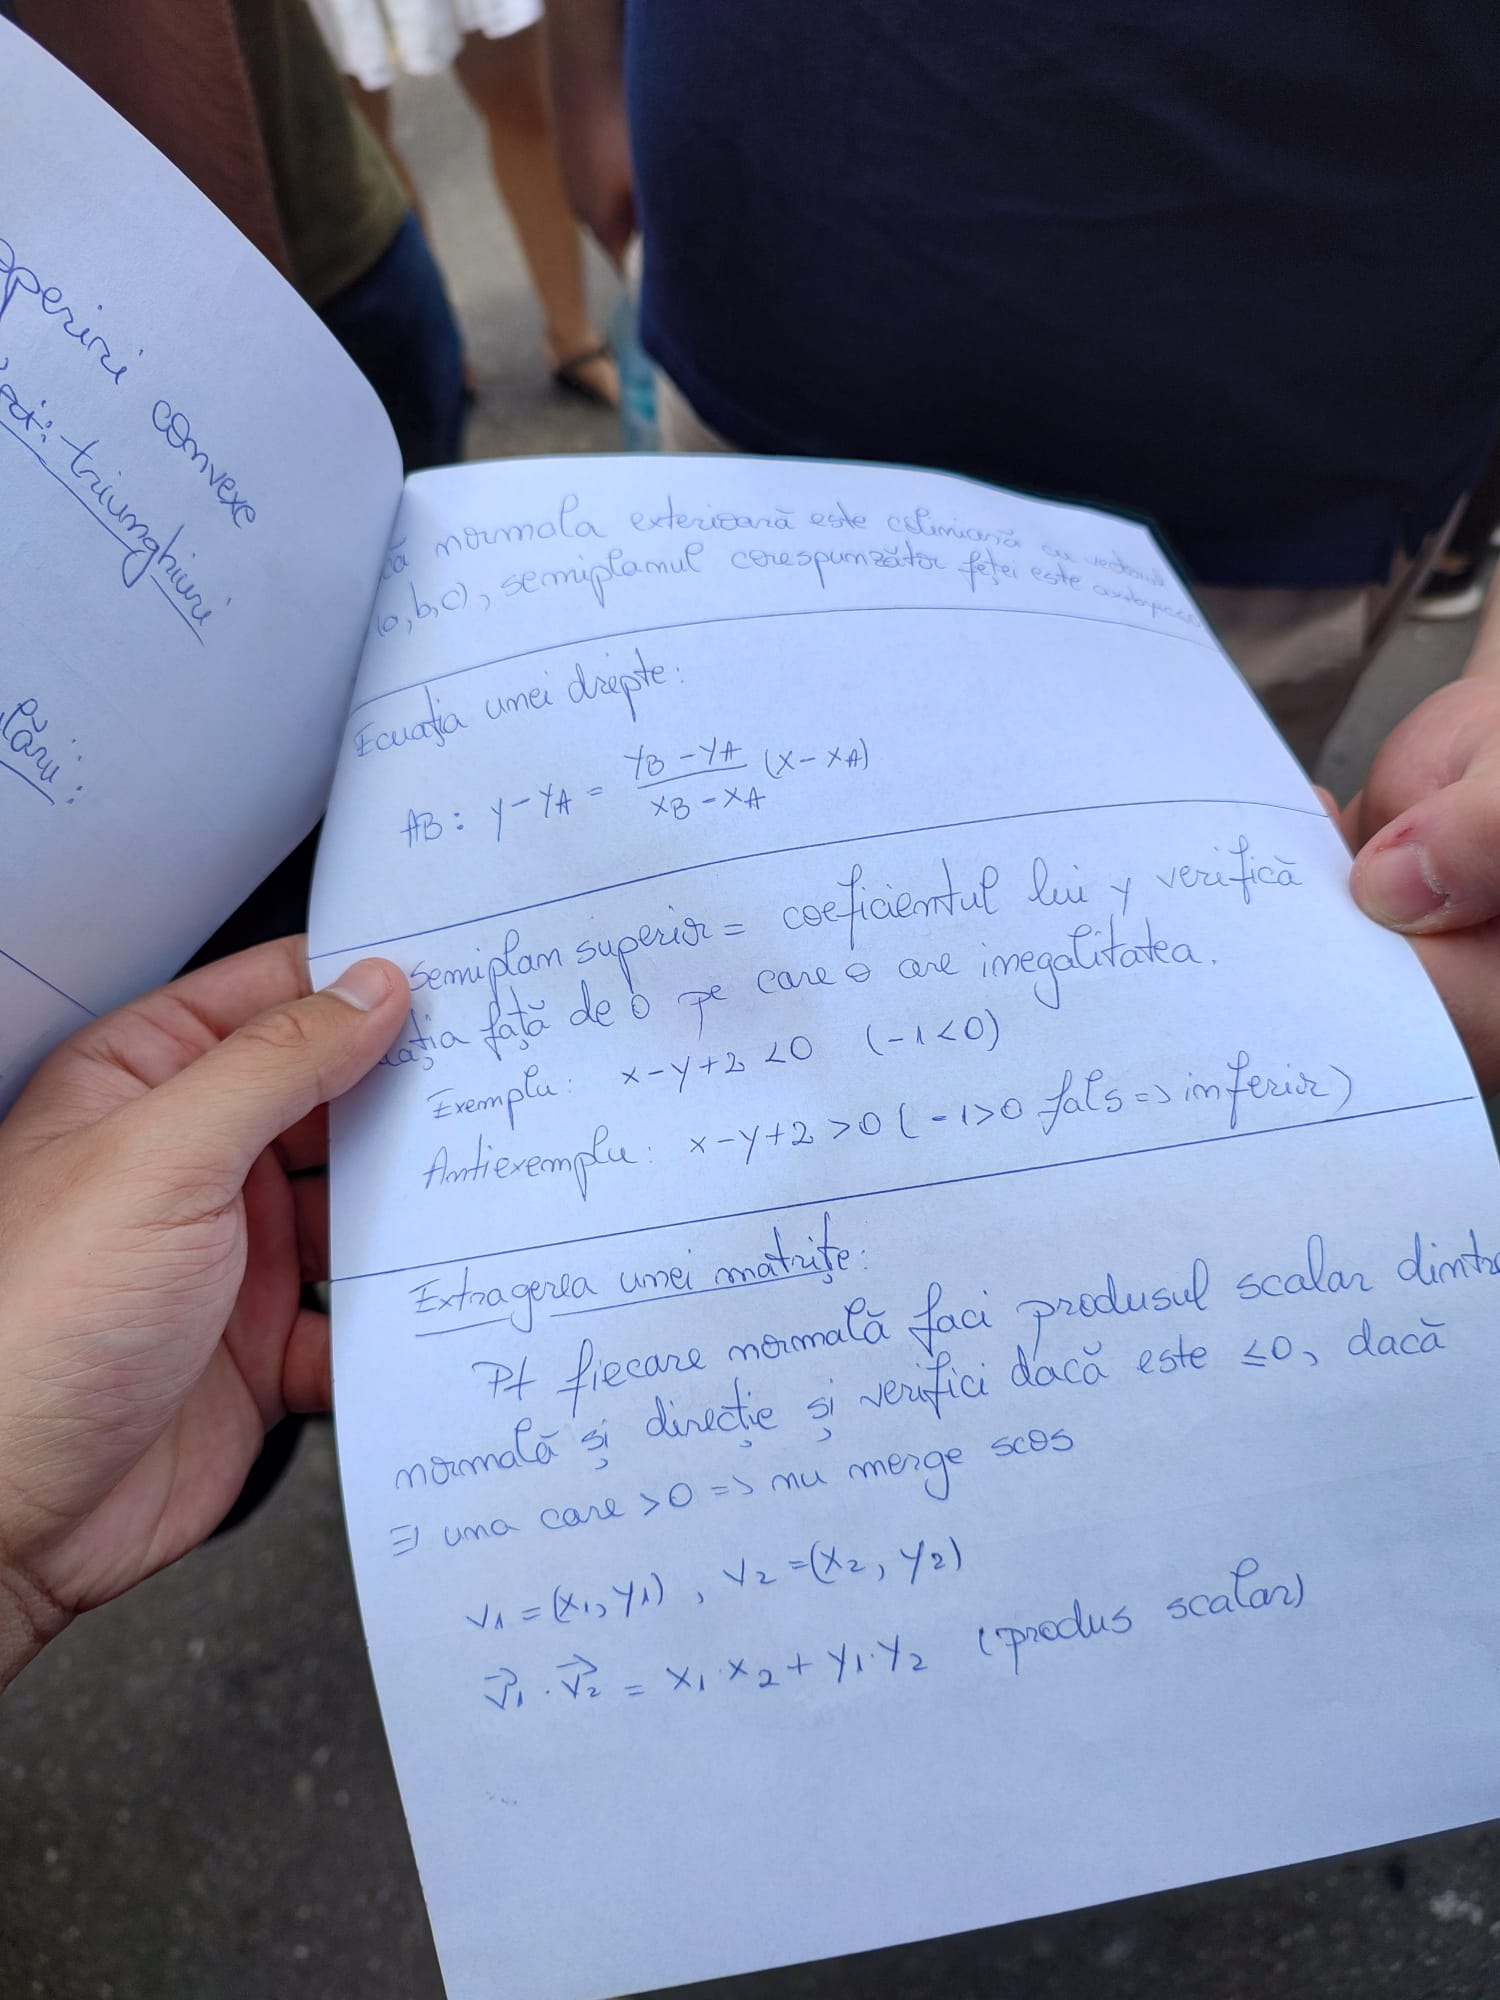 operiri convexe
triunghiuri
lări:
că normala exterioară este coliniară cu vectorul
(a,b,c), semiplanul corespunzător feței este
Ecuația unei drepte:
AB: y-yA = yB-yA / xB-xA (x-xA)
semiplan superior = coeficientul lui y verifică
ația față de 0 pe care o are inegalitatea.
Exemplu: x-y+2 <0 (-1<0)
Antiexemplu: x-y+2>0 (-1>0 fals => inferior)
Extragerea unei matrițe:
Pt fiecare normală faci produsul scalar dintre
normală și direcție și verifici dacă este ≤0, dacă
∃ una care >0 => nu merge scos
v1 = (x1, y1), v2 = (x2, y2)
v⃗1 · v⃗2 = x1·x2 + y1·y2 (produs scalar)